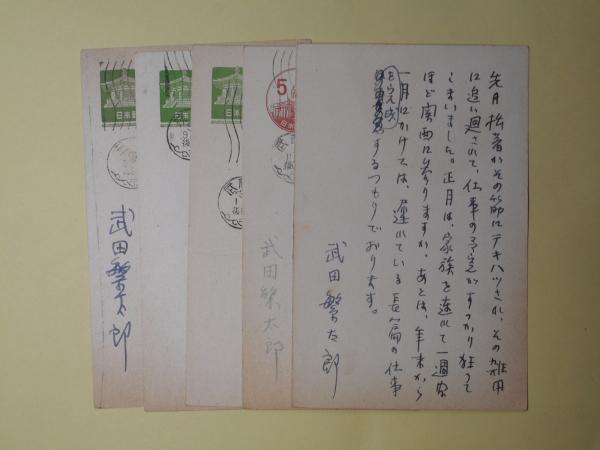 先月拙著がその筋にテキハツされ、その雑用
に追い廻されて、仕事の予定がすっかり狂って
しまいました。正月は、家族を連れて一週間
ほど関西に参りますが、あとは、年末から
一月にかけては、遅れている長篇の仕事
を完成するつもりでおります。
武田繁太郎
武田繁太郎
5
日本
武田繁太郎
日本郵